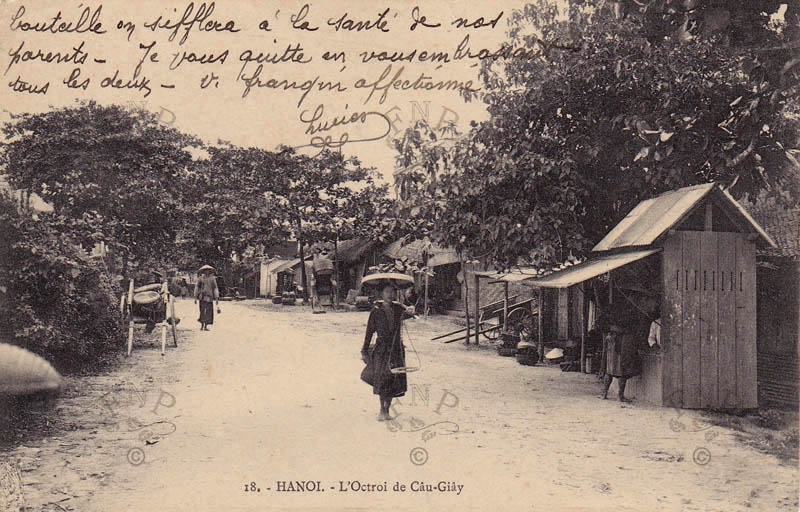 bouteille on sifflera à la santé de nos
parents - Je vous quitte en vous embrassant
tous les deux - V. frangin affectionné
Lucien
18. - HANOI. - L'Octroi de Câu-Giây
ENP
ENP
ENP
ENP
©
©
©